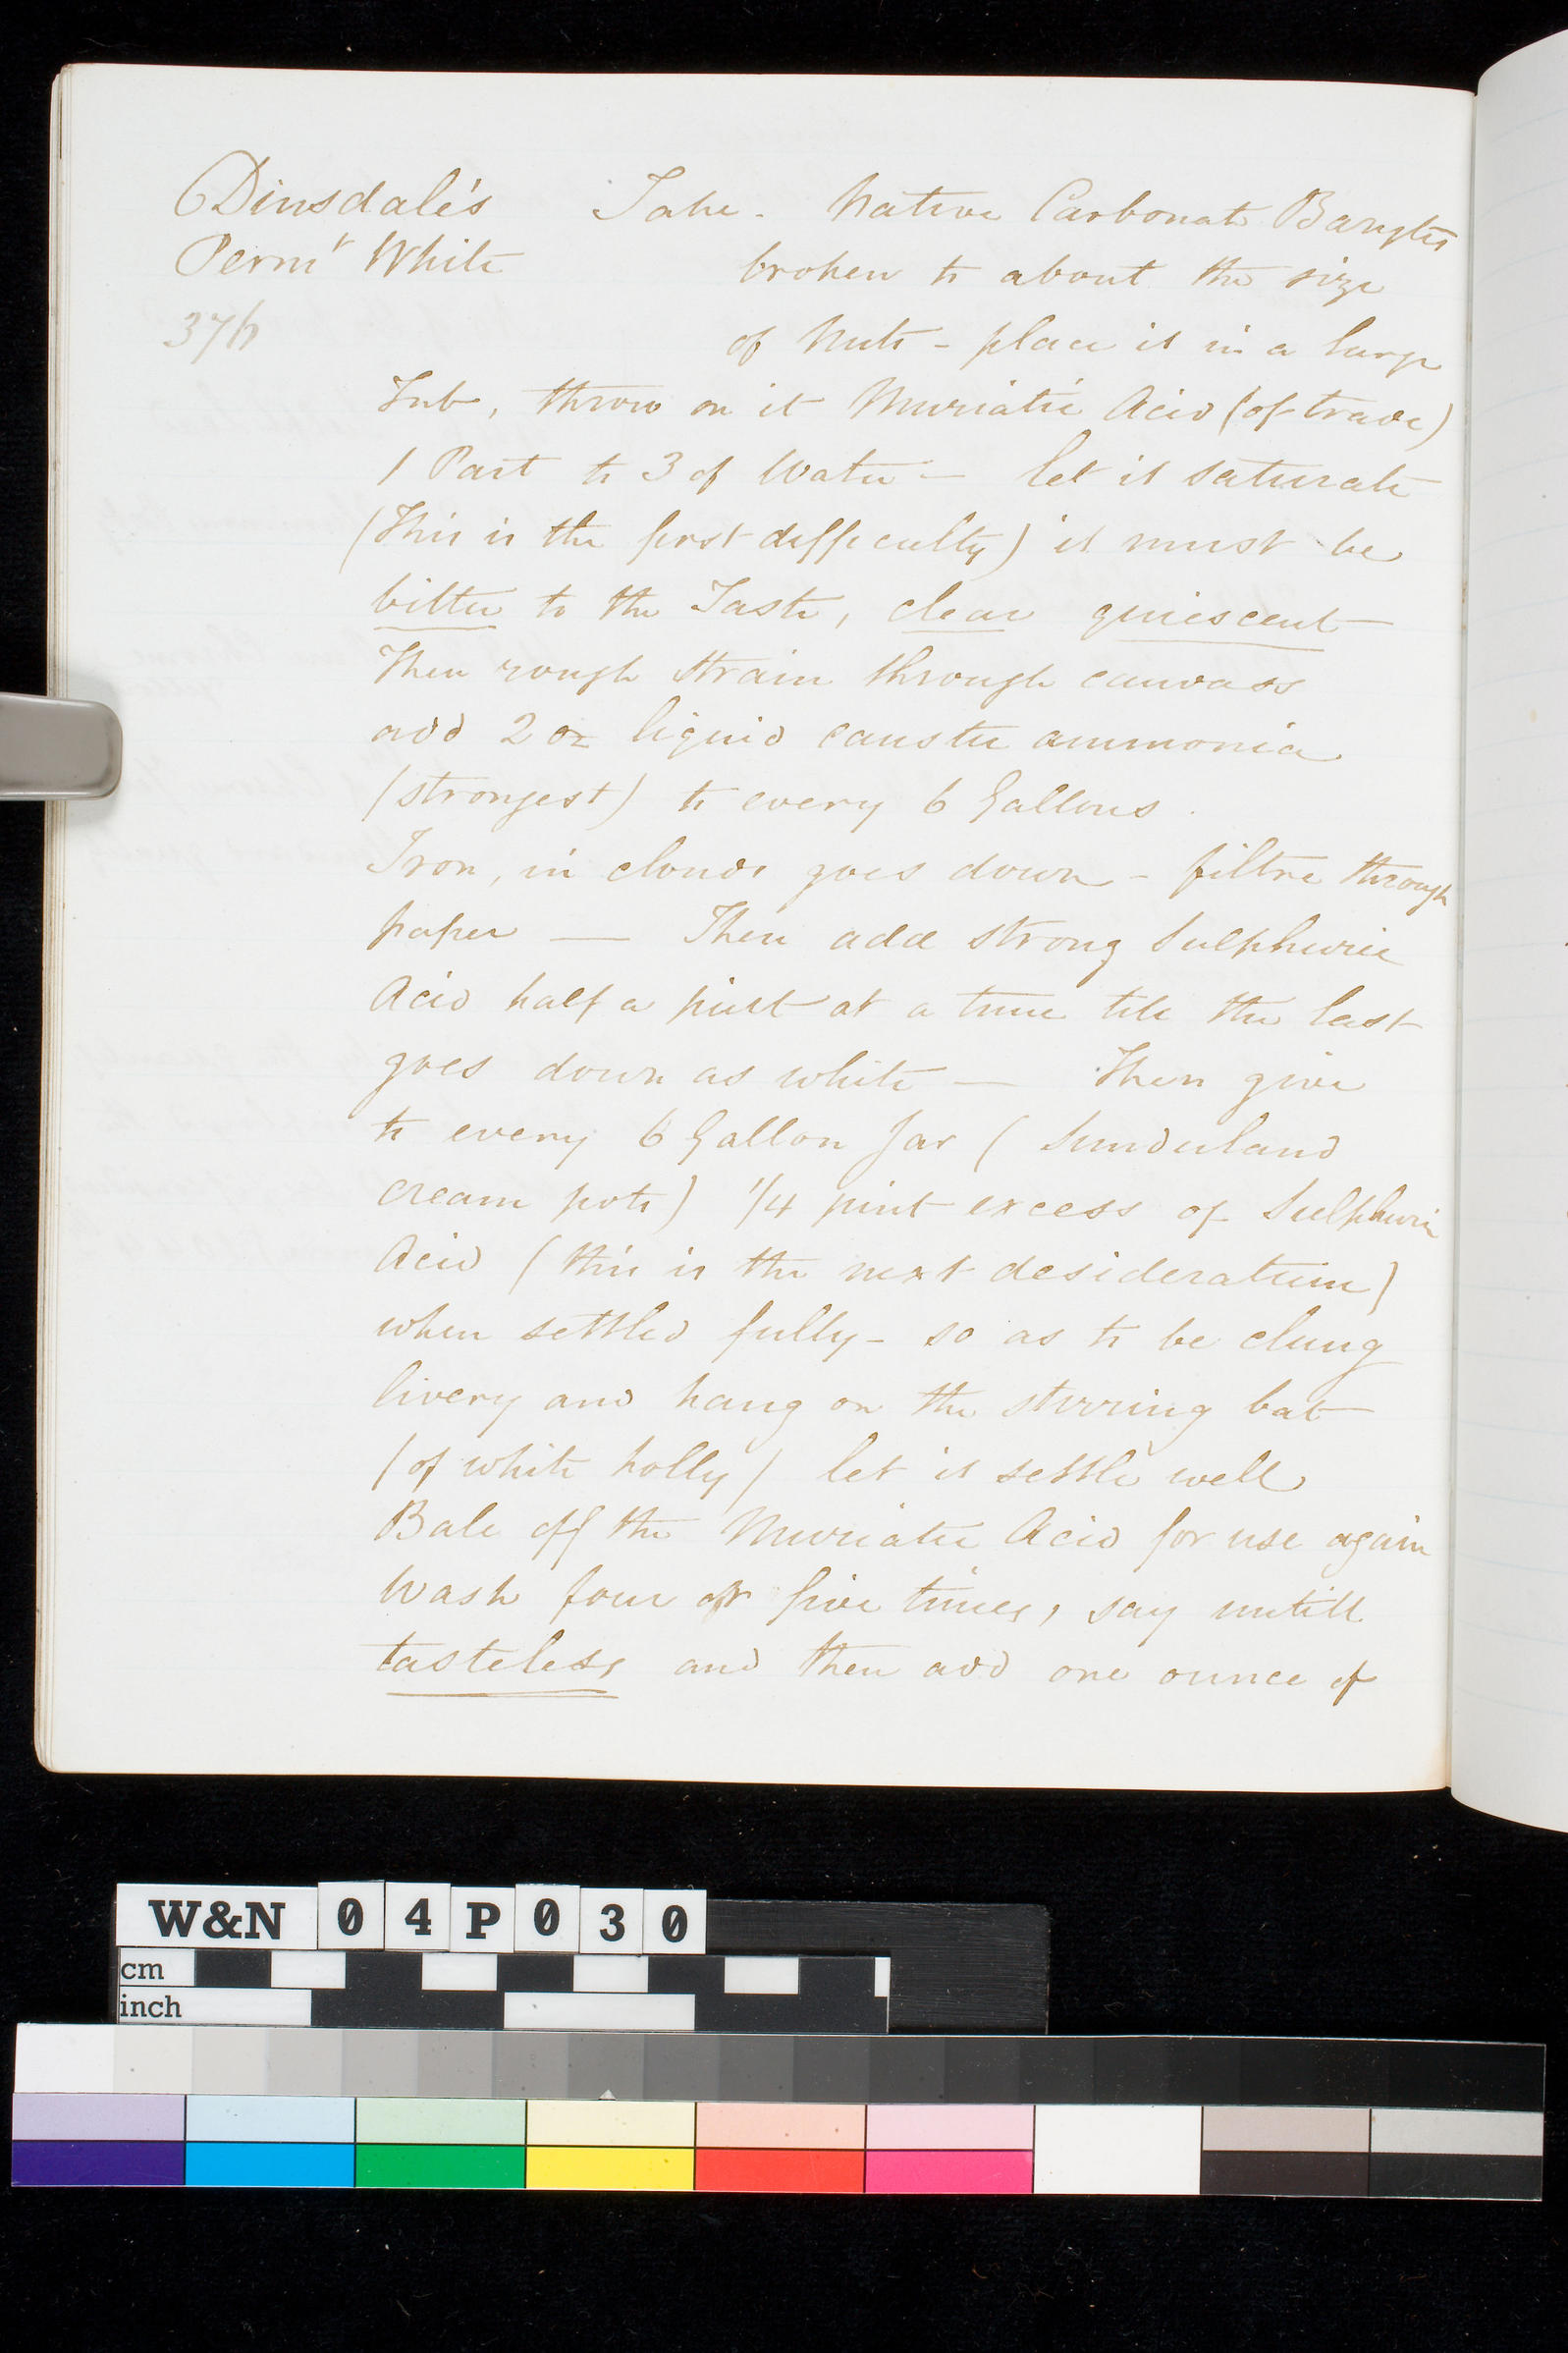 Dinsdale's Take - Native Carbonate Barytes
Permt White broken to about the size
37 of Nuts - place it in a large
Tub, throw on it Muriatic Acid (of trade)
1 Part to 3 of Water — let it saturate
(This is the first difficulty) it must be
bitter to the Taste, clear quiescent —
Then rough strain through canvass
add 2 oz liquid caustic ammonia
(strongest) to every 6 Gallons.
Iron, in clouds goes down - filtre through
paper — Then add strong Sulphuric
Acid half a pint at a time till the last
goes down as white — Then give
to every 6 Gallon Jar (Sunderland
cream pots) 1/4 pint excess of Sulphuric
Acid (this is the next desideratum)
when settled fully - so as to be clung
livery and hang on the stirring bat
(of white holly) let it settle well
Bale off the Muriatic Acid for use again
Wash four or five times, say untill
tasteless and then add one ounce of
W&N 04P030
cm
inch